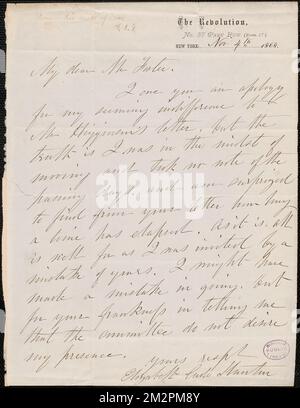 The Revolution,
No. 37 Park Row (Room 17.)
New York, Nov 4th 1868.
My dear Mr
I owe you an apology
for my seeming indifference to
Mr Higginson's letter, but the
truth is I was in the midst of
moving and took no note of the
passing days and am surprised
to find from your letter how long
a time has elapsed. As it is all
is well for as I was invited by a
mistake of yours. I might have
made a mistake in going, but
for your frankness in telling me
that the committee do not desire
my presence. yours respt
Elizabeth Cady Stanton
alamy
Image ID: 2M2PM8Y
www.alamy.com